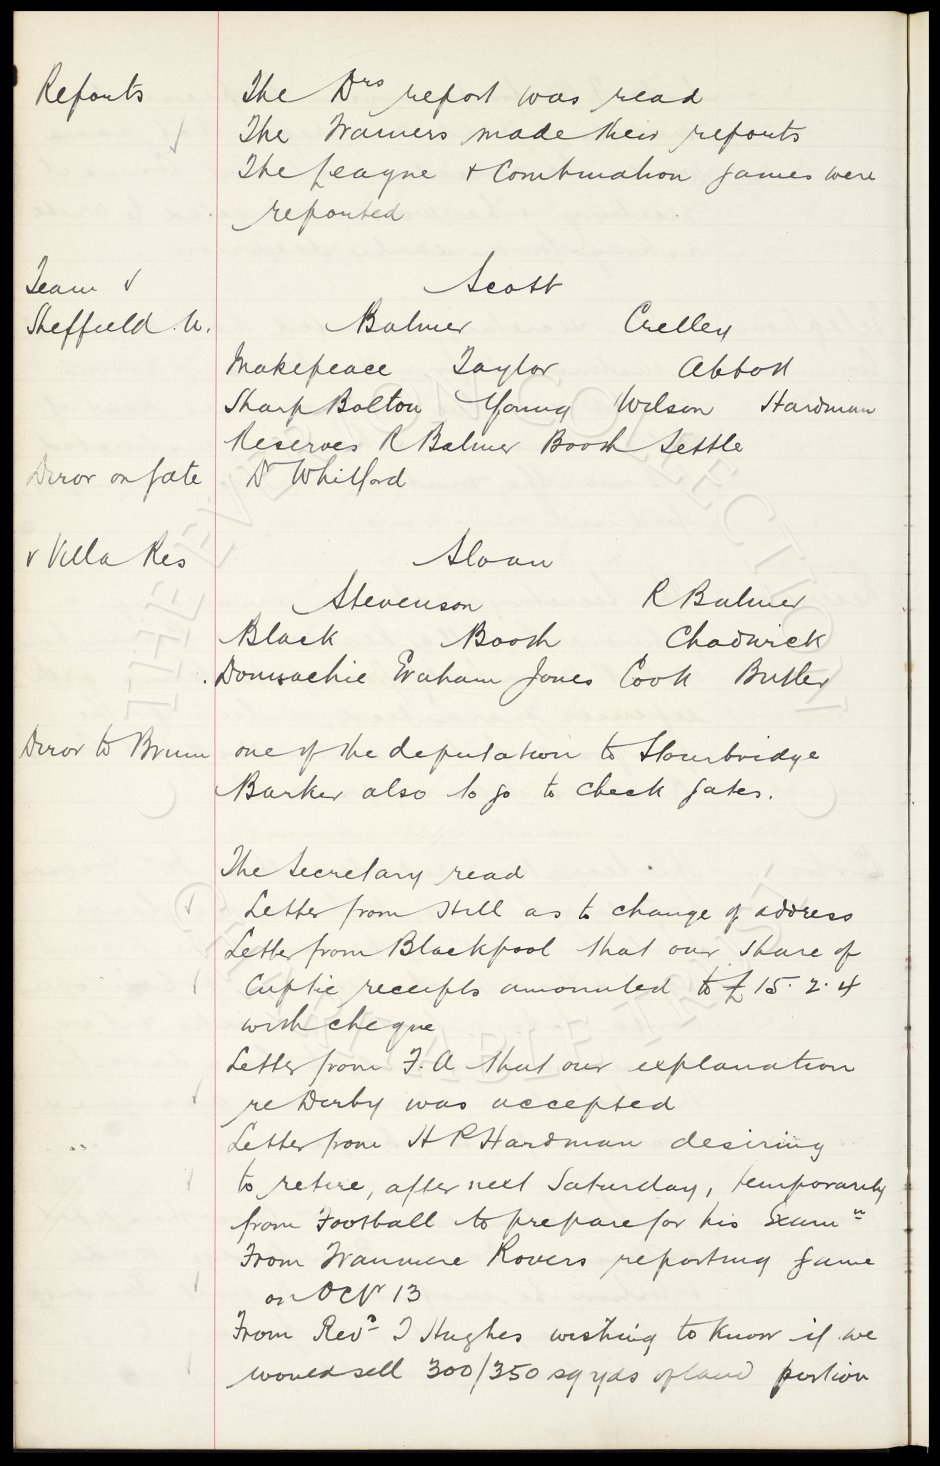 Reports The Drs report was read
The Trainers made their reports
The League & Combination games were
reported
Team v Scott
Sheffield U. Balmer Crelley
Makepeace Taylor Abbott
Sharp Bolton Young Wilson Hardman
Reserves R Balmer Booth Settle
Diror on Gate Dr Whitford
v Villa Res Sloan
Stevenson R Balmer
Black Booth Chadwick
Donnachie Graham Jones Cook Butler
Diror to Brum one of the deputation to Stourbridge
Barker also to go to check gates.
The Secretary read
Letter from Hill as to change of address
Letter from Blackpool that our share of
Cuptie receipts amounted to £15.2.4
with cheque
Letter from F.A that our explanation
re Derby was accepted
Letter from H P Hardman desiring
to retire, after next Saturday, temporarily
from Football to prepare for his Examn
From Tranmere Rovers reporting game
on Octr 13
From Revd J Hughes wishing to know if we
would sell 300/350 sq yds of land portion
THE EVERTON COLLECTION